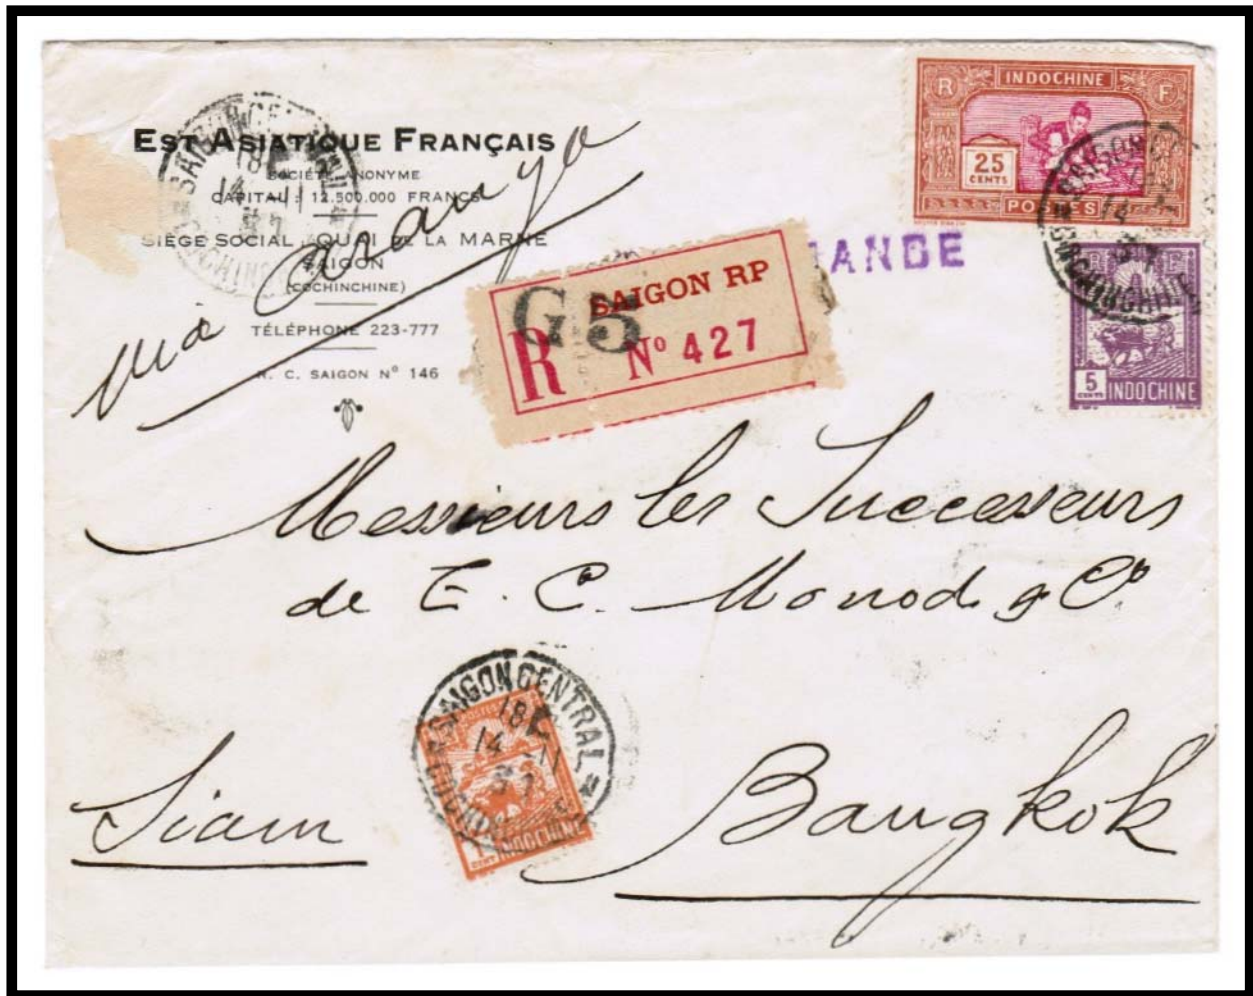 EST ASIATIQUE FRANÇAIS
SOCIÉTÉ ANONYME
CAPITAL : 12.500.000 FRANCS
SIÈGE SOCIAL : QUAI DE LA MARNE
SAIGON
(COCHINCHINE)
TÉLÉPHONE 223-777
R. C. SAIGON Nº 146
via Aranya
R INDOCHINE F
25
CENTS
POSTES
ANDE
SAIGON RP
G5
R Nº 427
5
CENTS
INDOCHINE
Messieurs les Successeurs
de E. C. Monod & Cº
SAIGON CENTRAL
18
14 -11
37
POSTES
1
CENT
INDOCHINE
Siam
Bangkok